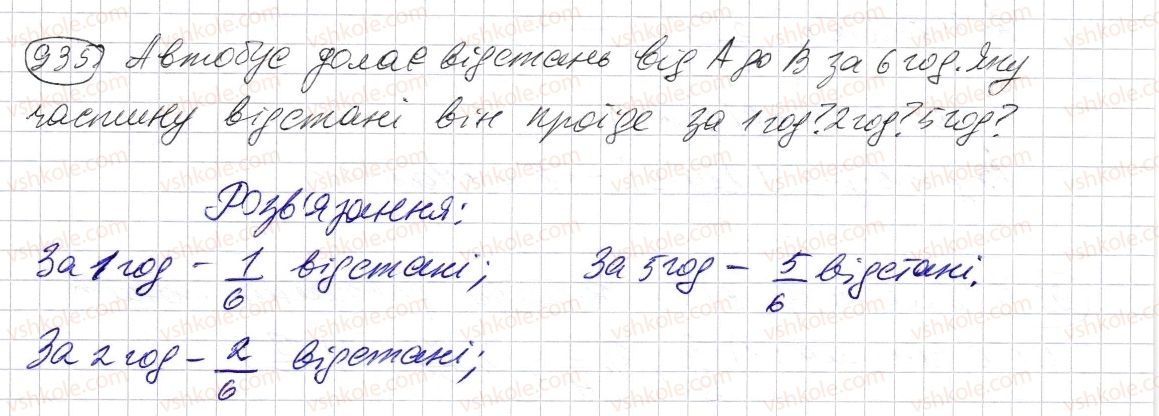 935) Автобус долає відстань від А до В за 6 год. Яку
частину відстані він проїде за 1 год? 2 год? 5 год?
Розв'язання:
За 1 год - 1/6 відстані; За 5 год - 5/6 відстані.
За 2 год - 2/6 відстані;